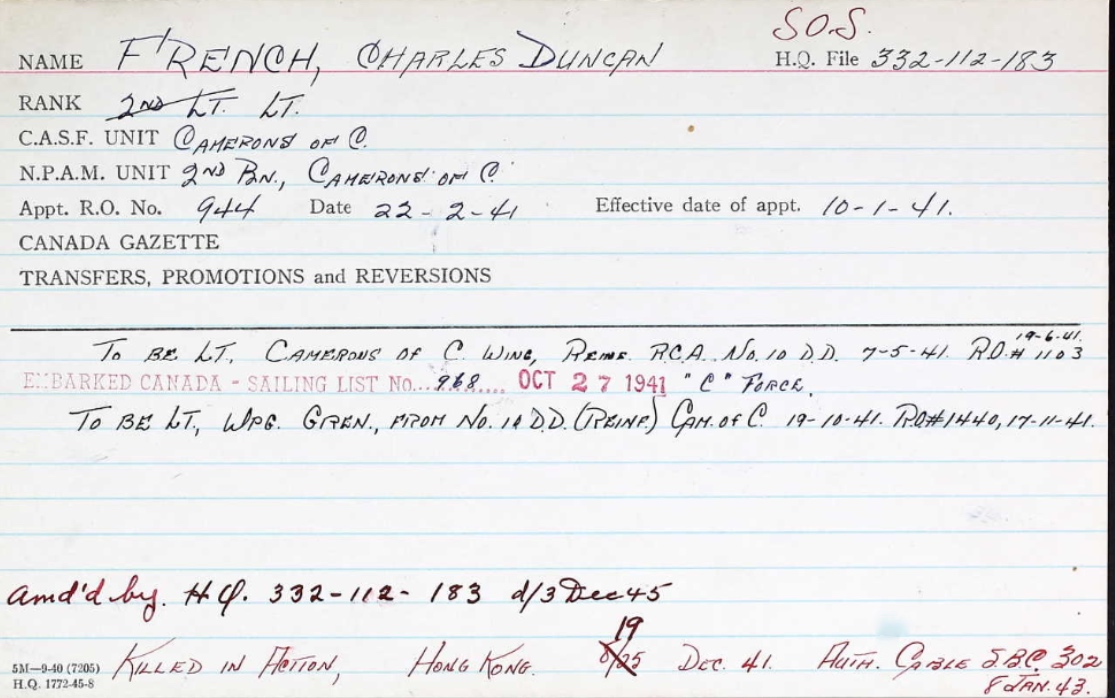 S.O.S.
NAME FRENCH, CHARLES DUNCAN H.Q. File 332-112-183
RANK 2ND LT. LT.
C.A.S.F. UNIT CAMERONS OF C.
N.P.A.M. UNIT 2ND BN., CAMERONS OF C.
Appt. R.O. No. 944 Date 22-2-41 Effective date of appt. 10-1-41.
CANADA GAZETTE
TRANSFERS, PROMOTIONS and REVERSIONS
19-6-41.
TO BE LT. CAMERONS OF C. WING, REINF. R.C.A. No. 10 D.D. 7-5-41. R.O.# 1103
EMBARKED CANADA - SAILING LIST No....968.... OCT 27 1941 "C" FORCE.
TO BE LT., WPG. GREN., FROM No. 10 D.D. (REINF.) CAM. OF C. 19-10-41. RO#1440, 17-11-41.
Amd'd by. H.Q. 332-112-183 d/3 Dec 45
19
5M—9-40 (7205) KILLED IN ACTION, HONG KONG. DEC. 41. AUTH. CABLE S.B.C. 302
H.Q. 1772-45-8 8 JAN. 43.